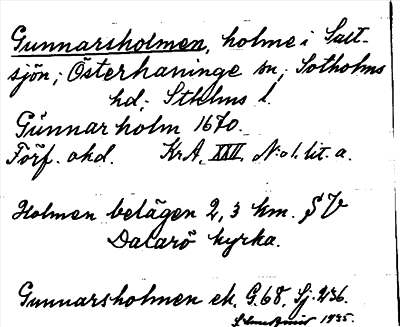 Gunnarsholmen, holme i Salt-
sjön; Österhaninge sn; Sotholms
hd; Sthlms l.
Gunnarholm 1670.
Förf. okd. KrA, XXV. N:o 1. lit. a.
Holmen belägen 2,3 km. S V
Dalarö kyrka.
Gunnarsholmen ek. G.68, Sj. 236.
1935.